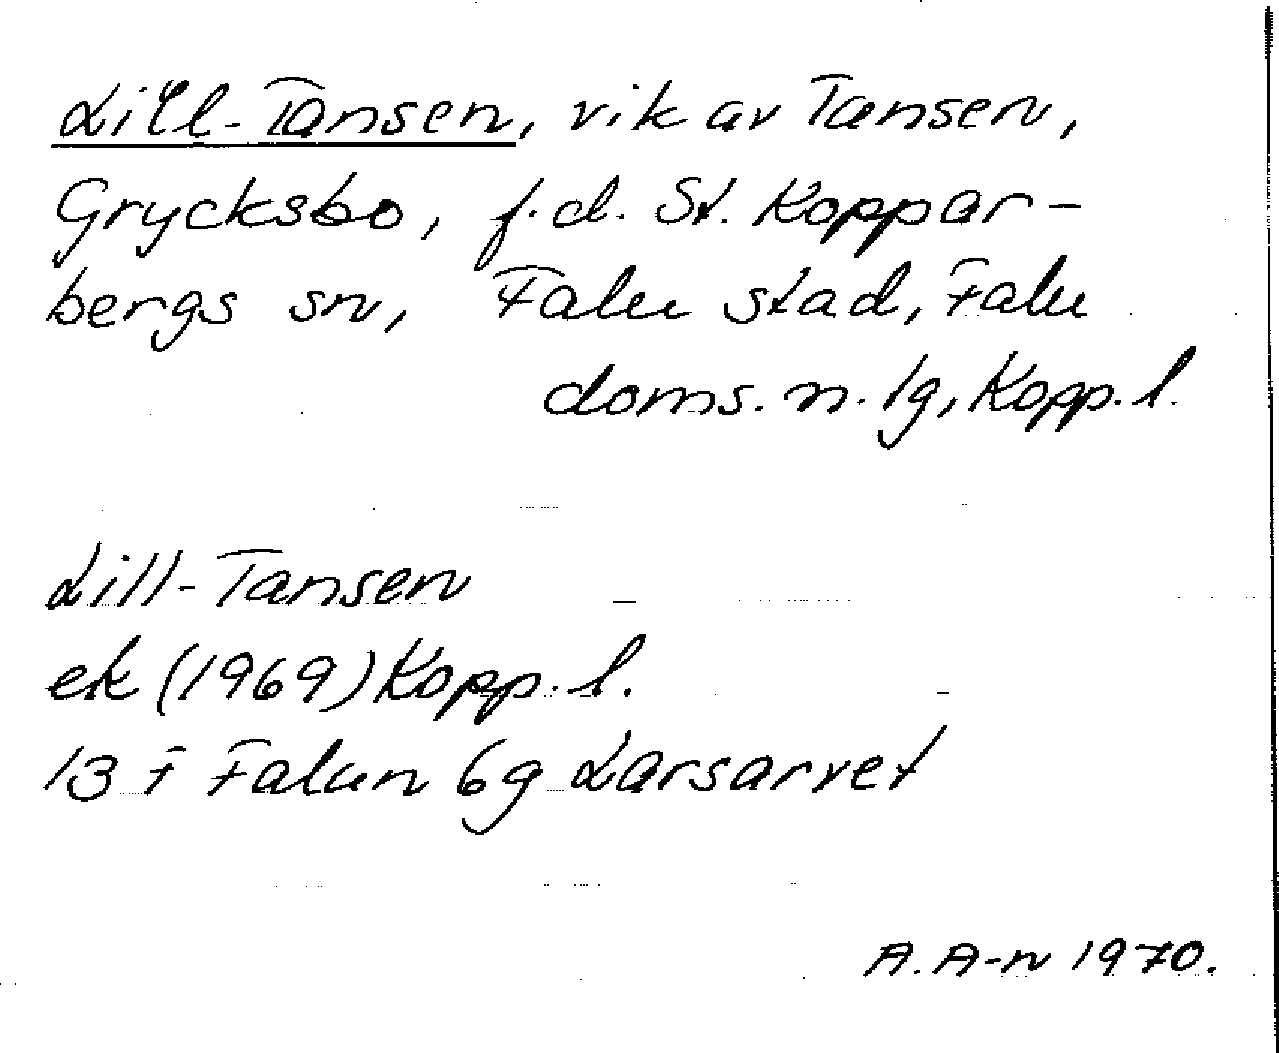 Lill-Tansen, vik av Tansen,
Grycksbo, f.d. St. Koppar-
bergs sn, Falu stad, Falu
doms. n. lg, Kopp. l.
Lill-Tansen
ek (1969) Kopp. l.
13 F Falun 6g Larsarvet
A. A-n 1970.